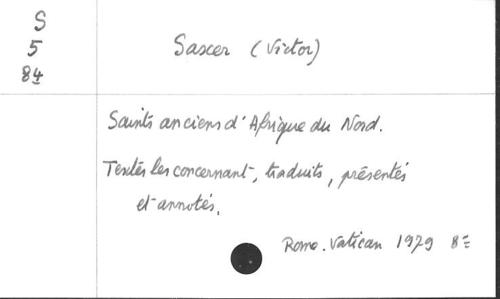 S
5
84
Saxer (Victor)
Saints anciens d'Afrique du Nord.
Textes les concernant, traduits, présentés
et annotés.
Rome. Vatican 1979 8=